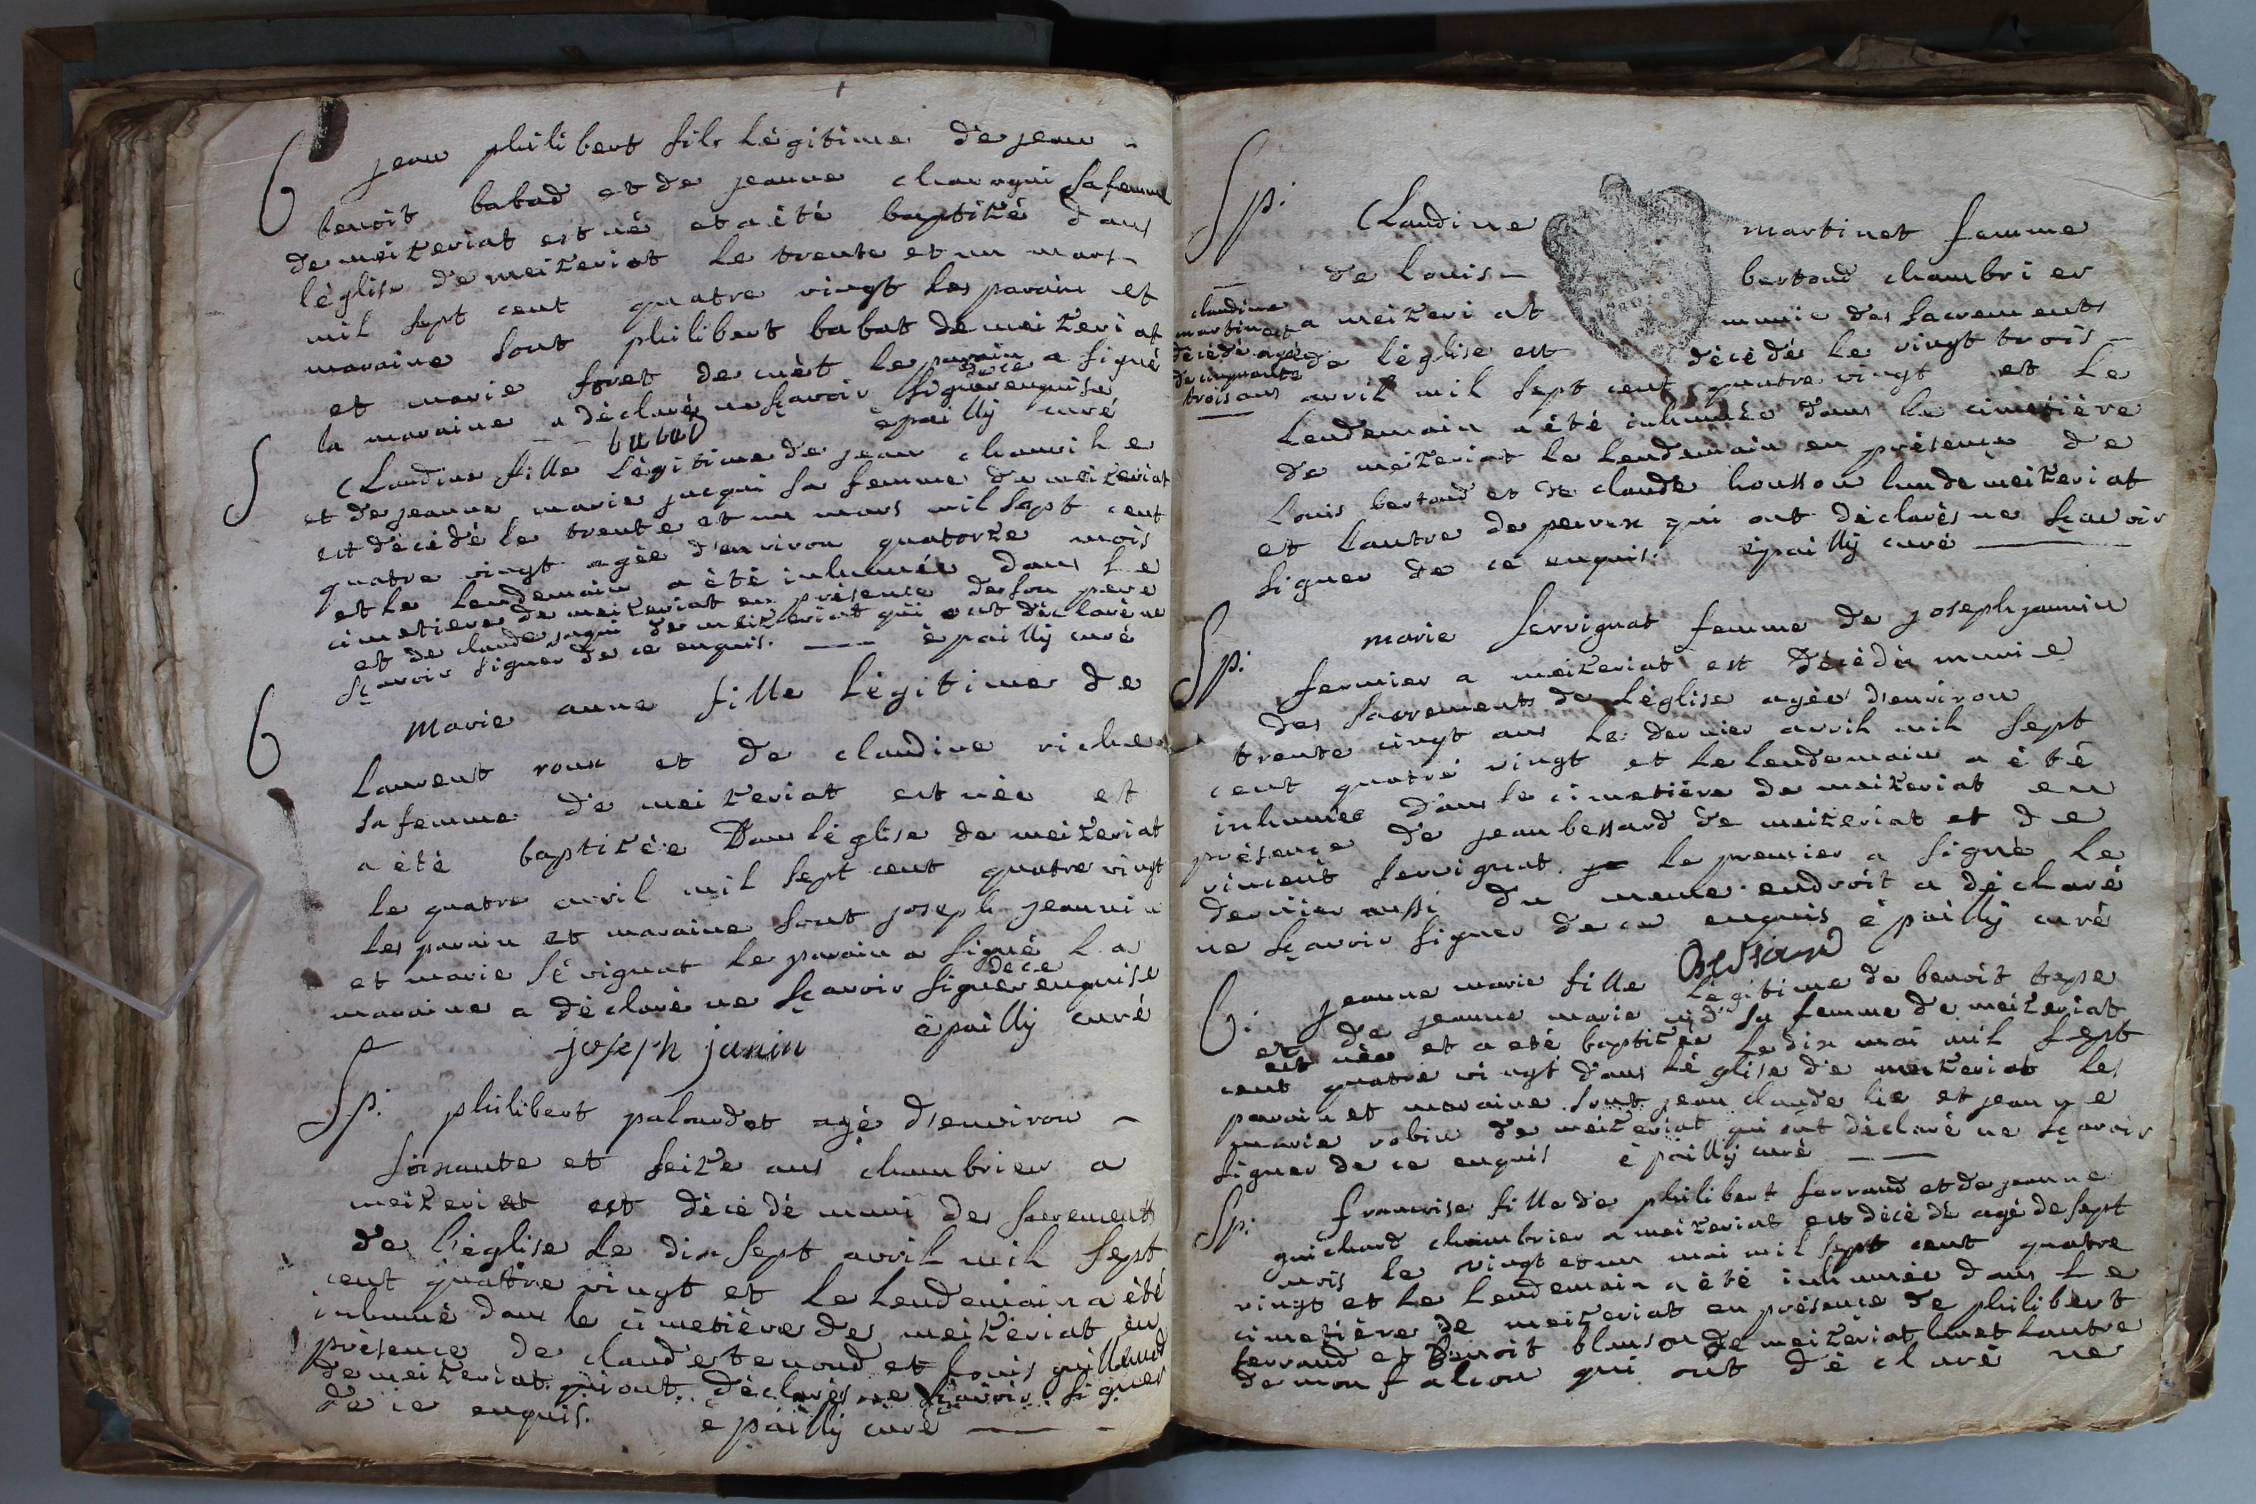 B jean philibert fils légitime de jean
benoit babad et de jeanne charagui sa femme
de meizeriat est né et a été baptizé dans
léglise de meizeriat le trente et un mars
mil sept cent quatre vingt les parain et
maraine sont philibert babat de meizeriat
et marie foret de cuèt le parain a signé
la maraine a déclaré ne sçavoir signer de ce enquise
babad épaillÿ curé
S Claudine fille légitime de jean
et de jeanne marie jacqui sa femme de meizeriat
est décédé le trente et un mars mil sept cent
quatre vingt agée d'environ quatorze mois
et le lendemain a été inhumée dans le
cimetiere de meizeriat en présence de son pere
et de claude jaqui de meizeriat qui ont déclaré ne
sçavoir signer de ce enquis. épaillÿ curé
B Marie anne fille légitime de
laurent roux et de claudine riche
sa femme de meizeriat est née et
a été baptizée Dans léglise de meizeriat
le quatre avril mil sept cent quatre vingt
les parain et maraine sont joseph jeannin
et marie sévignat le parain a signé la
maraine a déclaré ne sçavoir signer de ce enquise
joseph janin épaillÿ curé
Sp. philibert palourdet agé d'environ
soixante et seize ans chambrier a
meizeriat est décédé muni des sacrements
de l'église le dix sept avril mil sept
cent quattre vingt et le lendemain a été
inhumé dans le cimetière de meizériat en
présence de claude tenoud et louis guillemod
de meizeriat qui ont déclarés ne sçavoir signer
de ce enquis. épaillÿ curé
Sp. Claudine martinet femme
de louis bertoud chambrier
claudine
martinet
décédé agée
de cinquante
trois ans
a meizeriat munie des sacrements
de léglise est décédée le vingt trois
avril mil sept cent quatre vingt et le
lendemain a été inhumée dans le cimetière
de meizeriat le lendemain en présence de
louis bertoud et de claude housson lun de meizeriat
et lautre de perrex qui ont déclarés ne sçavoir
signer de ce enquis. épaillÿ curé
Sp. marie servignat femme de joseph jannin
fermier a meizeriat est décédée munie
des sacrements de léglise agée d'environ
trente cinqt ans le dernier avril mil sept
cent quatre vingt et le lendemain a été
inhumée dans le cimetière de meizeriat en
présence de jean bessard de meizeriat et de
vincent servignat le premier a signé le
dernier aussi du meme endroit a déclaré
ne sçavoir signer de ce enquis épaillÿ curé
Bessard
B. jeanne marie fille légitime de benoit tape
et de jeanne marie sa femme de meizeriat
est née et a été baptizée le dix mai mil sept
cent quatre vingt dans léglise de meizeriat les
parain et maraine sont jean claude lie et jeanne
marie robin de meizeriat qui ont déclaré ne sçavoir
signer de ce enquis épaillÿ curé
Sp. francoise fille de philibert ferrand et de jeanne
guichard chambrier a meizeriat est décédé agé de sept
mois le vingt et un mai mil sept cent quatre
vingt et le lendemain a été inhumée dans le
cimetière de meizeriat en présence de philibert
ferrand et Benoit bluson de meizériat lun et lautre
de monfalcon qui ont déclaré ne